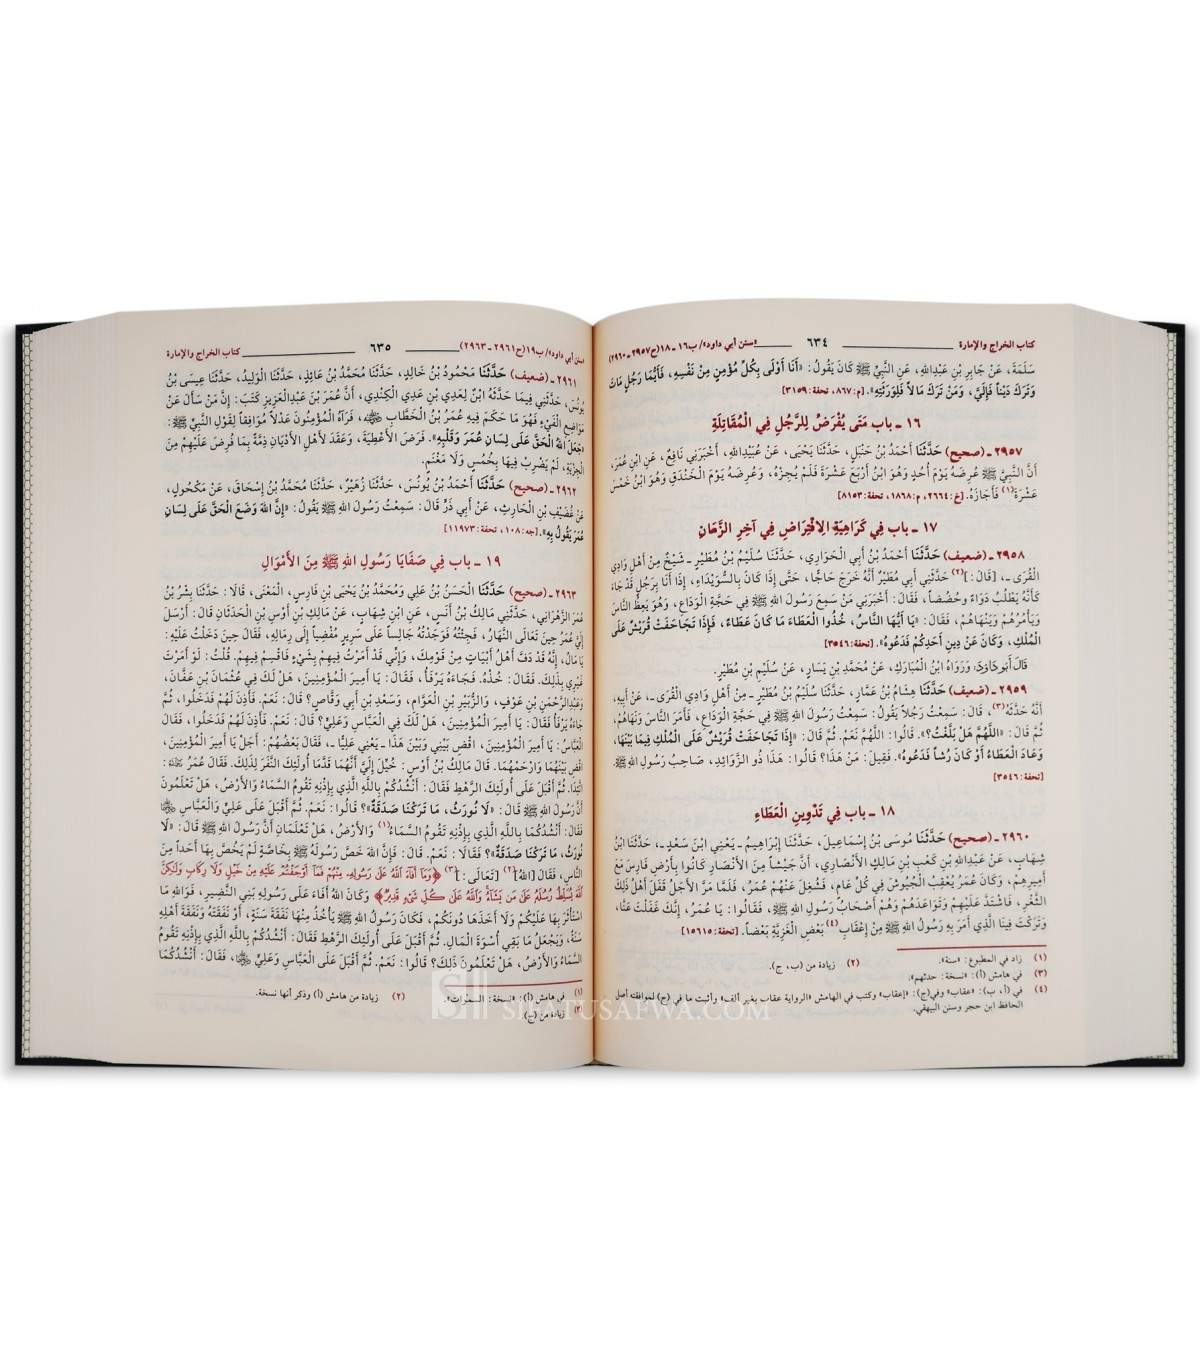 كتاب الخراج والإمارة ٦٣٤ «سنن أبي داود»/ ب١٦ ـ ١٨(ح٢٩٥٧ ـ ٢٩٦٠)
سَلَمَةَ، عَنْ جَابِرِ بْنِ عَبْدِاللهِ، عَنِ النَّبِيِّ ﷺ كَانَ يَقُولُ: «أَنَا أَوْلَى بِكُلِّ مُؤْمِنٍ مِنْ نَفْسِهِ، فَأَيُّمَا رَجُلٍ مَاتَ
وَتَرَكَ دَيْناً فَإِلَيَّ، وَمَنْ تَرَكَ مَالاً فَلِوَرَثَتِهِ». [م: ٨٦٧، تحفة: ٣١٥٩]
١٦ ـ باب مَتَى يُفْرَضُ لِلرَّجُلِ فِي الْمُقَاتِلَةِ
٢٩٥٧ ـ (صحيح) حَدَّثَنَا أَحْمَدُ بْنُ حَنْبَلٍ، حَدَّثَنَا يَحْيَى، عَنْ عُبَيْدِاللهِ، أَخْبَرَنِي نَافِعٌ، عَنِ ابْنِ عُمَرَ،
أَنَّ النَّبِيَّ ﷺ عُرِضَهُ يَوْمَ أُحُدٍ وَهُوَ ابْنُ أَرْبَعَ عَشْرَةَ فَلَمْ يُجِزْهُ، وَعُرِضَهُ يَوْمَ الْخَنْدَقِ وَهُوَ ابْنُ خَمْسَ
عَشْرَةَ(١) فَأَجَازَهُ. [خ: ٢٦٦٤، م: ١٨٦٨، تحفة: ٨١٥٣]
١٧ ـ باب فِي كَرَاهِيَةِ الِافْتِرَاضِ فِي آخِرِ الزَّمَانِ
٢٩٥٨ ـ (ضعيف) حَدَّثَنَا أَحْمَدُ بْنُ أَبِي الْحَوَارِي، حَدَّثَنَا سُلَيْمُ بْنُ مُطَيْرٍ ـ شَيْخٌ مِنْ أَهْلِ وَادِي
الْقُرَى ـ، [قَالَ:](٢) حَدَّثَنِي أَبِي مُطَيْرٌ أَنَّهُ خَرَجَ حَاجًّا، حَتَّى إِذَا كَانَ بِالسُّوَيْدَاءِ، إِذَا أَنَا بِرَجُلٍ قَدْ جَاءَ
كَأَنَّهُ يَطْلُبُ دَوَاءً وحُضُضاً، فَقَالَ: أَخْبَرَنِي مَنْ سَمِعَ رَسُولَ اللهِ ﷺ فِي حَجَّةِ الْوَدَاعِ، وَهُوَ يَعِظُ النَّاسَ
وَيَأْمُرُهُمْ وَيَنْهَاهُمْ، فَقَالَ: «يَا أَيُّهَا النَّاسُ، خُذُوا الْعَطَاءَ مَا كَانَ عَطَاءً، فَإِذَا تَجَاحَفَتْ قُرَيْشٌ عَلَى
الْمُلْكِ، وَكَانَ عَنْ دِينِ أَحَدِكُمْ فَدَعُوهُ». [تحفة: ٣٥٤٦]
قَالَ أَبو دَاوُدَ: وَرَوَاهُ ابْنُ الْمُبَارَكِ، عَنْ مُحَمَّدِ بْنِ يَسَارٍ، عَنْ سُلَيْمِ بْنِ مُطَيْرٍ.
٢٩٥٩ ـ (ضعيف) حَدَّثَنَا هِشَامُ بْنُ عَمَّارٍ، حَدَّثَنَا سُلَيْمُ بْنُ مُطَيْرٍ ـ مِنْ أَهْلِ وَادِي الْقُرَى ـ، عَنْ أَبِيهِ،
أَنَّهُ حَدَّثَهُ(٣)، قَالَ: سَمِعْتُ رَجُلاً يَقُولُ: سَمِعْتُ رَسُولَ اللهِ ﷺ فِي حَجَّةِ الْوَدَاعِ، فَأَمَرَ النَّاسَ وَنَهَاهُمْ،
ثُمَّ قَالَ: «اللَّهُمَّ هَلْ بَلَّغْتُ؟». قَالُوا: اللَّهُمَّ نَعَمْ. ثُمَّ قَالَ: «إِذَا تَجَاحَفَتْ قُرَيْشٌ عَلَى الْمُلْكِ فِيمَا بَيْنَهَا،
وَعَادَ الْعَطَاءُ أَوْ كَانَ رُشاً فَدَعُوهُ». فَقِيلَ: مَنْ هَذَا؟ قَالُوا: هَذَا ذُو الزَّوَائِدِ، صَاحِبُ رَسُولِ اللهِ ﷺ.
[تحفة: ٣٥٤٦]
١٨ ـ باب فِي تَدْوِينِ الْعَطَاءِ
٢٩٦٠ ـ (صحيح) حَدَّثَنَا مُوسَى بْنُ إِسْمَاعِيلَ، حَدَّثَنَا إِبْرَاهِيمُ ـ يَعْنِي ابْنَ سَعْدٍ ـ، حَدَّثَنَا ابْنُ
شِهَابٍ، عَنْ عَبْدِاللهِ بْنِ كَعْبِ بْنِ مَالِكٍ الأَنْصَارِيِّ، أَنَّ جَيْشاً مِنَ الأَنْصَارِ كَانُوا بِأَرْضِ فَارِسَ مَعَ
أَمِيرِهِمْ، وَكَانَ عُمَرُ يُعْقِبُ الْجُيُوشَ فِي كُلِّ عَامٍ، فَشُغِلَ عَنْهُمْ عُمَرُ، فَلَمَّا مَرَّ الأَجَلُ قَفَلَ أَهْلُ ذَلِكَ
الثَّغْرِ، فَاشْتَدَّ عَلَيْهِمْ وَتَوَاعَدَهُمْ وَهُمْ أَصْحَابُ رَسُولِ اللهِ ﷺ، فَقَالُوا: يَا عُمَرُ، إِنَّكَ غَفَلْتَ عَنَّا،
وَتَرَكْتَ فِينَا الَّذِي أَمَرَ بِهِ رَسُولُ اللهِ ﷺ مِنْ إِعْقَابِ(٤) بَعْضِ الْغَزِيَّةِ بَعْضاً. [تحفة: ١٥٦١٥]
(١) زاد في المطبوع: «سنة». (٢) زيادة من (ب، ج).
(٣) في هامش (أ): «نسخة: حدثهم».
(٤) في (أ، ب): «عقاب» وفي(ج): «إعقاب» وكتب في الهامش «الرواية عقاب بغير ألف» وأثبت ما في (ج) لموافقته أصل
الحافظ ابن حجر وسنن البيهقي.
«سنن أبي داود»/ ب١٩(ح٢٩٦١ ـ ٢٩٦٣) ٦٣٥ كتاب الخراج والإمارة
٢٩٦١ ـ (ضعيف) حَدَّثَنَا مَحْمُودُ بْنُ خَالِدٍ، حَدَّثَنَا مُحَمَّدُ بْنُ عَائِذٍ، حَدَّثَنَا الْوَلِيدُ، حَدَّثَنَا عِيسَى بْنُ
يُونُسَ، حَدَّثَنِي فِيمَا حَدَّثَهُ ابْنٌ لِعَدِيِّ بْنِ عَدِيٍّ الْكِنْدِي، أَنَّ عُمَرَ بْنَ عَبْدِالْعَزِيزِ كَتَبَ: إِنَّ مَنْ سَأَلَ عَنْ
مَوَاضِعِ الْفَيْءِ فَهُوَ مَا حَكَمَ فِيهِ عُمَرُ بْنُ الْخَطَّابِ ﵁، فَرَآهُ الْمُؤْمِنُونَ عَدْلاً مُوَافِقاً لِقَوْلِ النَّبِيِّ ﷺ:
«جَعَلَ اللهُ الْحَقَّ عَلَى لِسَانِ عُمَرَ وَقَلْبِهِ». فَرَضَ الأَعْطِيَةَ، وَعَقَدَ لأَهْلِ الأَدْيَانِ ذِمَّةً بِمَا فُرِضَ عَلَيْهِمْ مِنَ
الْجِزْيَةِ، لَمْ يَضْرِبْ فِيهَا بِخُمُسٍ وَلَا مَغْنَمٍ.
٢٩٦٢ ـ (صحيح) حَدَّثَنَا أَحْمَدُ بْنُ يُونُسَ، حَدَّثَنَا زُهَيْرٌ، حَدَّثَنَا مُحَمَّدُ بْنُ إِسْحَاقَ، عَنْ مَكْحُولٍ،
عَنْ غُضَيْفِ بْنِ الْحَارِثِ، عَنْ أَبِي ذَرٍّ قَالَ: سَمِعْتُ رَسُولَ اللهِ ﷺ يَقُولُ: «إِنَّ اللهَ وَضَعَ الْحَقَّ عَلَى لِسَانِ
عُمَرَ يَقُولُ بِهِ». [جه: ١٠٨، تحفة: ١١٩٧٣]
١٩ ـ باب فِي صَفَايَا رَسُولِ اللهِ ﷺ مِنَ الأَمْوَالِ
٢٩٦٣ ـ (صحيح) حَدَّثَنَا الْحَسَنُ بْنُ عَلِي وَمُحَمَّدُ بْنُ يَحْيَى بْنِ فَارِسٍ، الْمَعْنَى، قَالَا: حَدَّثَنَا بِشْرُ بْنُ
عُمَرَ الزَّهْرَانِي، حَدَّثَنِي مَالِكُ بْنُ أَنَسٍ، عَنِ ابْنِ شِهَابٍ، عَنْ مَالِكِ بْنِ أَوْسِ بْنِ الْحَدَثَانِ قَالَ: أَرْسَلَ
إِلَيَّ عُمَرُ حِينَ تَعَالَى النَّهَارُ، فَجِئْتُهُ فَوَجَدْتُهُ جَالِساً عَلَى سَرِيرٍ مُفْضِياً إِلَى رِمَالِهِ، فَقَالَ حِينَ دَخَلْتُ عَلَيْهِ:
يَا مَالُ، إِنَّهُ قَدْ دَفَّ أَهْلُ أَبْيَاتٍ مِنْ قَوْمِكَ، وَإِنِّي قَدْ أَمَرْتُ فِيهِمْ بِشَيْءٍ فَاقْسِمْ فِيهِمْ. قُلْتُ: لَوْ أَمَرْتَ
غَيْرِي بِذَلِكَ. فَقَالَ: خُذْهُ. فَجَاءَهُ يَرْفَأُ، فَقَالَ: يَا أَمِيرَ الْمُؤْمِنِينَ، هَلْ لَكَ فِي عُثْمَانَ بْنِ عَفَّانَ،
وَعَبْدِالرَّحْمَنِ بْنِ عَوْفٍ، وَالزُّبَيْرِ بْنِ الْعَوَّامِ، وَسَعْدِ بْنِ أَبِي وَقَّاصٍ؟ قَالَ: نَعَمْ. فَأَذِنَ لَهُمْ فَدَخَلُوا، ثُمَّ
جَاءَهُ يَرْفَأُ فَقَالَ: يَا أَمِيرَ الْمُؤْمِنِينَ، هَلْ لَكَ فِي الْعَبَّاسِ وَعَلِيٍّ؟ قَالَ: نَعَمْ. فَأَذِنَ لَهُمْ فَدَخَلُوا، فَقَالَ
الْعَبَّاسُ: يَا أَمِيرَ الْمُؤْمِنِينَ، اقْضِ بَيْنِي وَبَيْنَ هَذَا ـ يَعْنِي عَلِيًّا ـ، فَقَالَ بَعْضُهُمْ: أَجَلْ يَا أَمِيرَ الْمُؤْمِنِينَ،
اقْضِ بَيْنَهُمَا وَارْحَمْهُمَا. قَالَ مَالِكُ بْنُ أَوْسٍ: خُيِّلَ إِلَيَّ أَنَّهُمَا قَدَّمَا أُولَئِكَ النَّفَرَ لِذَلِكَ. فَقَالَ عُمَرُ ﵀:
اتَّئِدَا. ثُمَّ أَقْبَلَ عَلَى أُولَئِكَ الرَّهْطِ فَقَالَ: أَنْشُدُكُمْ بِاللَّهِ الَّذِي بِإِذْنِهِ تَقُومُ السَّمَاءُ وَالأَرْضُ، هَلْ تَعْلَمُونَ
أَنَّ رَسُولَ اللهِ ﷺ قَالَ: «لَا نُورَثُ، مَا تَرَكْنَا صَدَقَةٌ»؟ قَالُوا: نَعَمْ. ثُمَّ أَقْبَلَ عَلَى عَلِيٍّ وَالْعَبَّاسِ ﵄
فَقَالَ: أَنْشُدُكُمَا بِاللَّهِ الَّذِي بِإِذْنِهِ تَقُومُ السَّمَاءُ(١) وَالأَرْضُ، هَلْ تَعْلَمَانِ أَنَّ رَسُولَ اللهِ ﷺ قَالَ: «لَا
نُورَثُ، مَا تَرَكْنَا صَدَقَةٌ»؟ فَقَالَا: نَعَمْ. قَالَ: فَإِنَّ اللهَ خَصَّ رَسُولَهُ ﷺ بِخَاصَّةٍ لَمْ يَخُصَّ بِهَا أَحَداً مِنَ
النَّاسِ، فَقَالَ [اللهُ](٢) [تَعَالَى:](٣) ﴿وَمَا أَفَاءَ اللَّهُ عَلَى رَسُولِهِ مِنْهُمْ فَمَا أَوْجَفْتُمْ عَلَيْهِ مِنْ خَيْلٍ وَلَا رِكَابٍ وَلَكِنَّ
اللَّهَ يُسَلِّطُ رُسُلَهُ عَلَى مَنْ يَشَاءُ وَاللَّهُ عَلَى كُلِّ شَيْءٍ قَدِيرٌ﴾ وَكَانَ اللهُ أَفَاءَ عَلَى رَسُولِهِ بَنِي النَّضِيرِ، فَوَاللهِ مَا
اسْتَأْثَرَ بِهَا عَلَيْكُمْ وَلَا أَخَذَهَا دُونَكُمْ، فَكَانَ رَسُولُ اللهِ ﷺ يَأْخُذُ مِنْهَا نَفَقَةَ سَنَةٍ، أَوْ نَفَقَتَهُ وَنَفَقَةَ أَهْلِهِ
سَنَةً، وَيَجْعَلُ مَا بَقِي أُسْوَةَ الْمَالِ. ثُمَّ أَقْبَلَ عَلَى أُولَئِكَ الرَّهْطِ فَقَالَ: أَنْشُدُكُمْ بِاللَّهِ الَّذِي بِإِذْنِهِ تَقُومُ
السَّمَاءُ وَالأَرْضُ، هَلْ تَعْلَمُونَ ذَلِكَ؟ قَالُوا: نَعَمْ. ثُمَّ أَقْبَلَ عَلَى الْعَبَّاسِ وَعَلِيٍّ ﵄، فَقَالَ: أَنْشُدُكُمَا
(١) في هامش (أ): «نسخة: السموات». (٢) زيادة من هامش (أ) وذكر أنها نسخة.
(٣) زيادة من (ج).
SIFATUSAFWA.COM